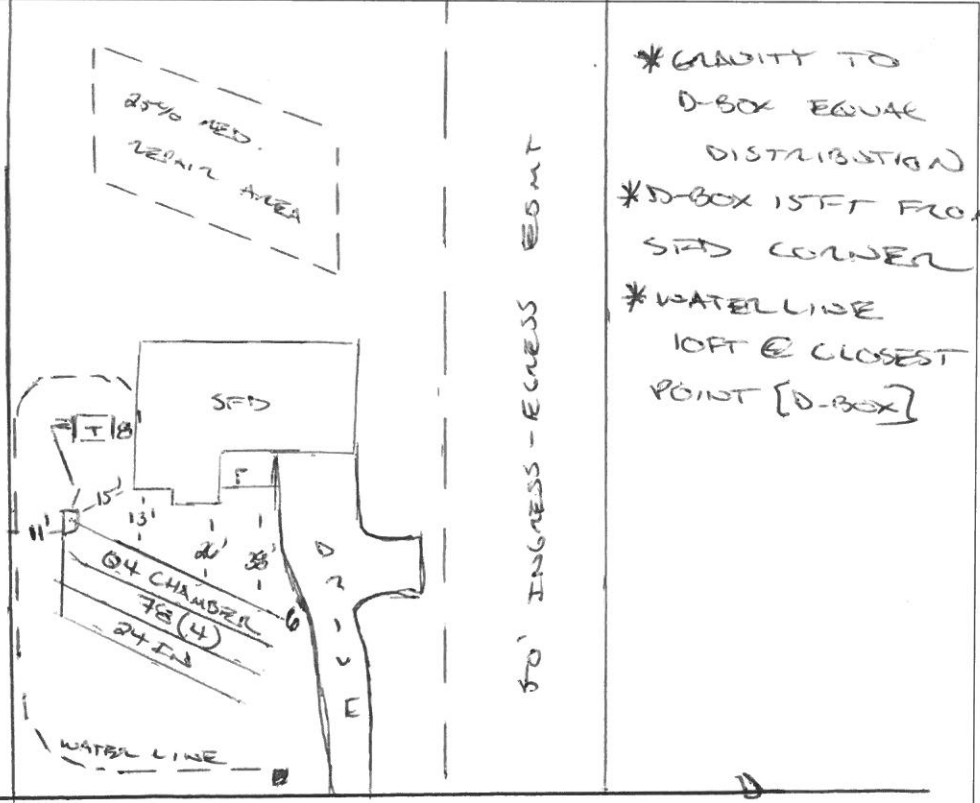 25% RED.
REPAIR AREA
SFD
T
8
15'
11'
13'
26'
38'
Q4 CHAMBER
78 (4)
24 IN
6
DRIVE
WATER LINE
50' INGRESS-EGRESS ESMT
* GRAVITY TO
D-BOX EQUAL
DISTRIBUTION
* D-BOX 15FT FROM
SFD CORNER
* WATER LINE
10FT @ CLOSEST
POINT [D-BOX]